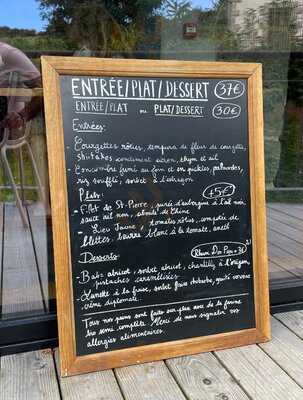 ENTRÉE/PLAT/DESSERT 37€
ENTRÉE/PLAT ou PLAT/DESSERT 30€
Entrées:
- Courgettes rôties, tempura de fleur de courgette,
shiitakés condiment citron, thym et ail
- Concombre fumé au foin et en pickles, palourdes,
riz soufflé, sorbet à l'estragon
Plats: +5€
- Filet de St-Pierre, purée d'aubergine à l'ail noir,
sauce ail noir, blinde de Chine
- Lieu Jaune, tomates rôties, compotée de
blettes, beurre blanc à la tomate, aneth
Desserts:
- Baba abricot, sorbet abricot, chantilly à l'origan,
pistaches caramélisées
- Lunette à la fraise, sorbet fraise rhubarbe, yaourt verveine
crème diplomate.
Tous nos pains sont faits sur place avec de la farine
bio semi complète. Merci de nous signaler vos
allergies alimentaires.